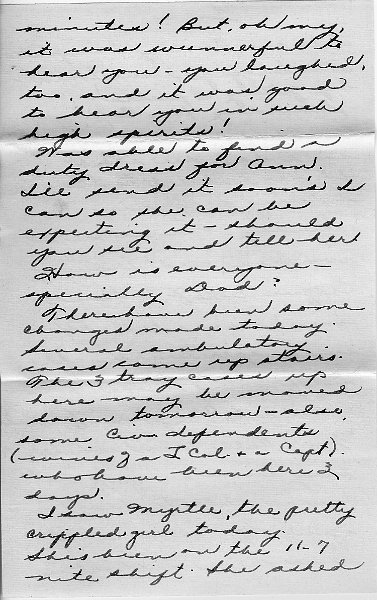 minutes! But, oh my,
it was wunnerful to
hear you - you laughed,
too, and it was good
to hear you in such
high spirits!
Was able to find a
duty dress for Ann.
I'll send it soon's I
can so she can be
expecting it - should
you see and tell her!
How is everyone -
specially Dad?
There have been some
changes made today.
Several ambulatory
cases come up stairs.
The 3 tray cases up
here may be moved
down tomorrow - also,
some Civ. dependents
(wives of a T Col. + a Capt).
who have been here 3
days.
I saw Myrtle, the pretty
crippled girl today.
She's been on the 11-7
nite shift. She asked